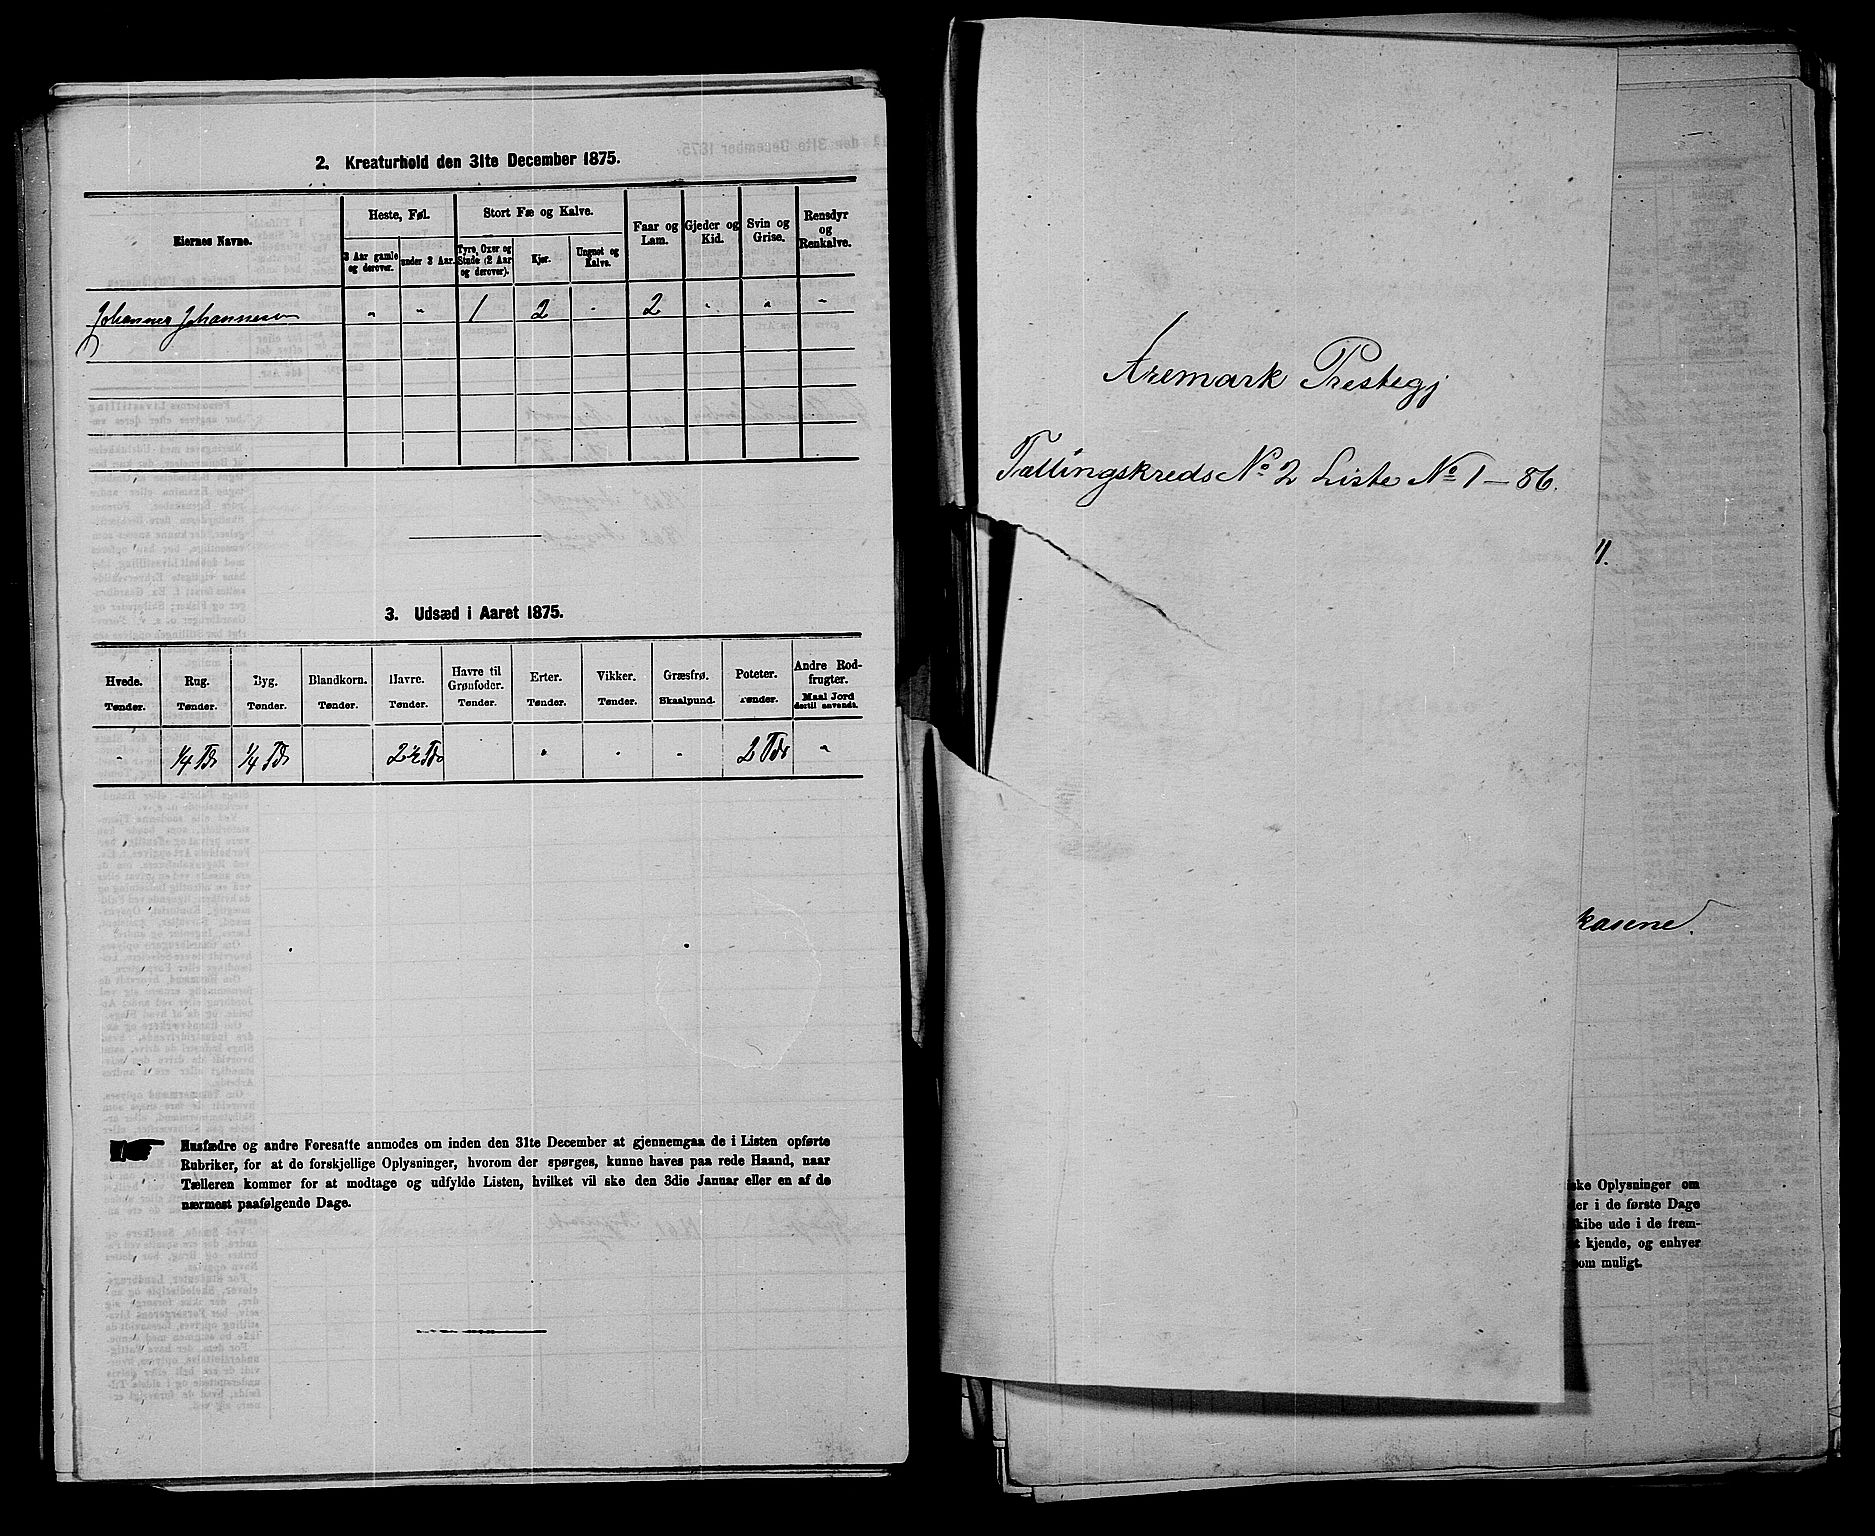 2. Kreaturhold den 31te December 1875.
Eiernes Navne.
Heste, Føl.
3 Aar gamle og derover.
under 3 Aar.
Stort Fæ og Kalve.
Tyre, Oxer og Stude (2 Aar og derover).
Kjør.
Ungnøt og Kalve.
Faar og Lam.
Gjeder og Kid.
Svin og Grise.
Rensdyr og Renkalve.
Johannes Johannesen " " 1 2 " 2 " " "
3. Udsæd i Aaret 1875.
Hvede. Rug. Byg. Blandkorn. Havre. Havre til Grønfoder. Erter. Vikker. Græsfrø. Poteter. Andre Rodfrugter.
Tønder. Tønder. Tønder. Tønder. Tønder. Tønder. Tønder. Tønder. Skaalpund. Tønder. Maal Jord dertil anvendt.
" 1/4 Tdr 1/4 Tdr 2 1/2 Tdr " " " 2 Tdr "
Husfædre og andre Foresatte anmodes om inden den 31te December at gjennemgaa de i Listen opførte
Rubriker, for at de forskjellige Oplysninger, hvorom der spørges, kunne haves paa rede Haand, naar
Tælleren kommer for at modtage og udfylde Listen, hvilket vil ske den 3die Januar eller en af de
nærmest paafølgende Dage.
Aremark Prestegj
Tællingskreds No 2 Liste No 1 – 86.
11.
kasene.
ske Oplysninger om
der i de første Dage
kibe ude i de frem-
t kjende, og enhver
som muligt.